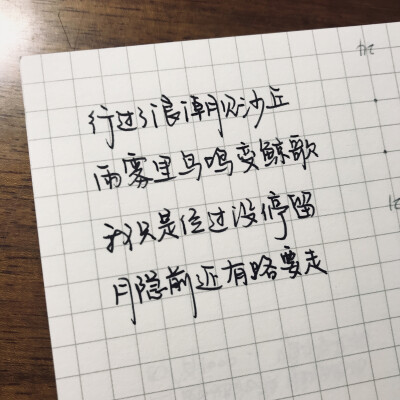 行过了浪潮见沙丘
雨雾里鸟鸣变鲸歌
我只是经过没停留
月隐前还有路要走